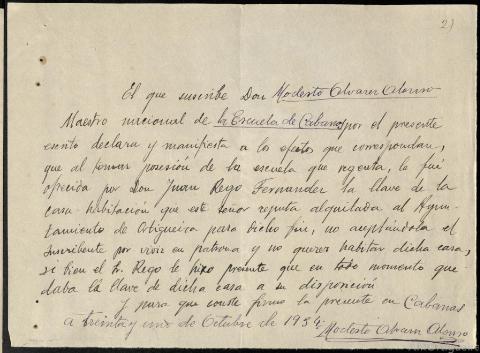 27
El que suscribe Don Modesto Alvarez Alonso
Maestro nacional de la Escuela de Cabanas por el presente
escrito declara y manifiesta a los efectos que correspondan,
que al tomar posesión de la escuela que regenta, le fué
ofrecida por Don Juan Rego Fernandez la llave de la
casa-habitación que este señor reputa alquilada al Ayun-
tamiento de Ortigueira para dicho fin, no aceptándola el
suscribente por vivir en patrona y no querer habitar dicha casa,
si bien el Sr. Rego le hizo presente que en todo momento que-
daba la llave de dicha casa a su disposición
Y para que conste firmo la presente en Cabanas
a treinta y uno de Octubre de 1934
Modesto Alvarez Alonso